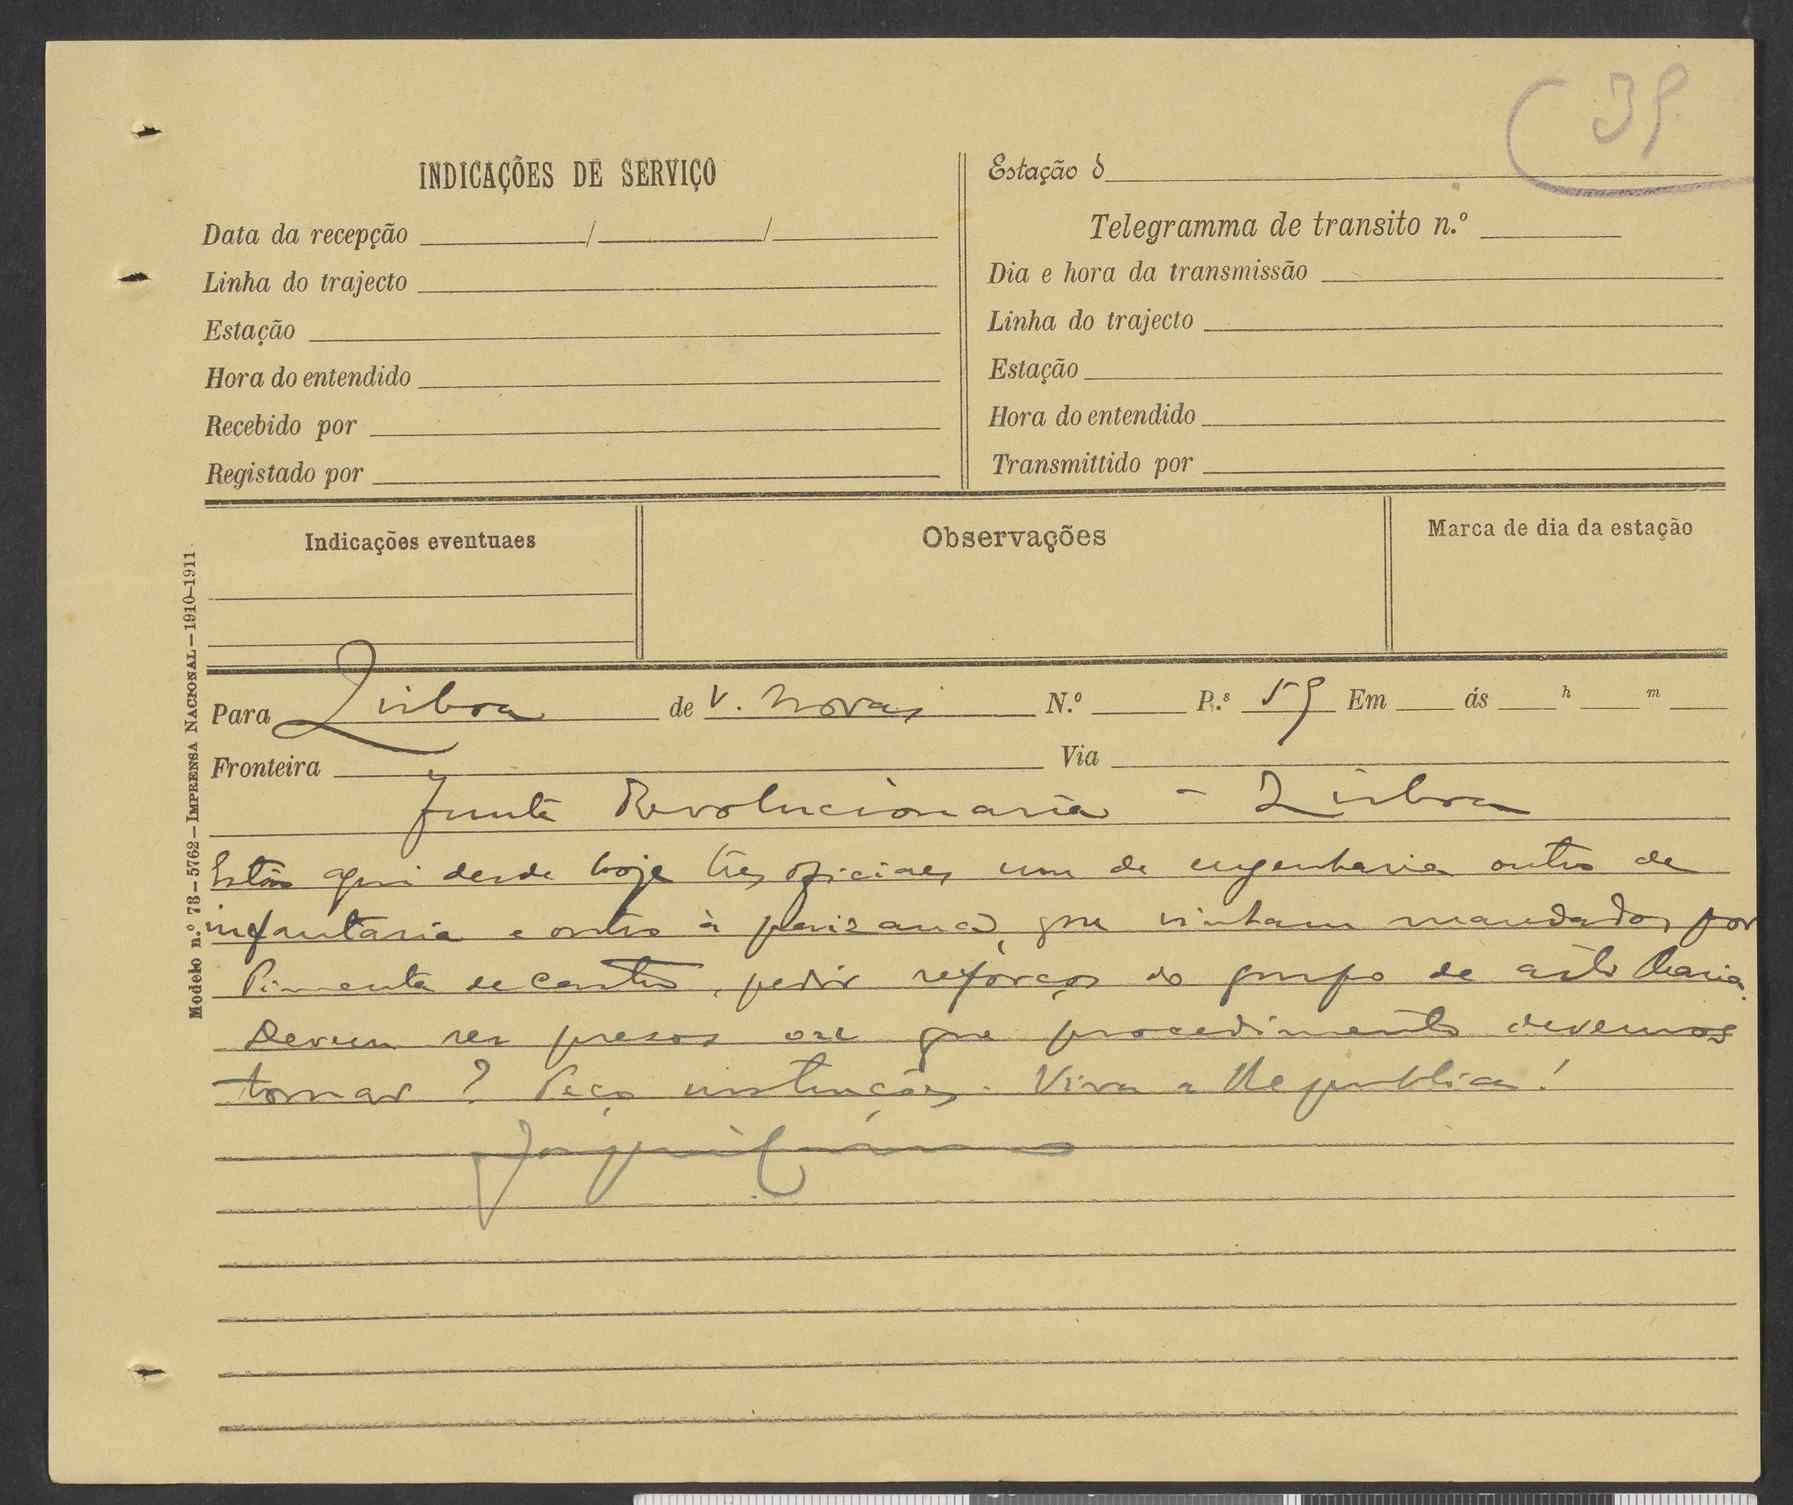 39
INDICAÇÕES DE SERVIÇO
Data da recepção / /
Linha do trajecto
Estação
Hora do entendido
Recebido por
Registado por
Estação d
Telegramma de transito n.º
Dia e hora da transmissão
Linha do trajecto
Estação
Hora do entendido
Transmittido por
Indicações eventuaes
Observações
Marca de dia da estação
Modelo n.º 73—5762—IMPRENSA NACIONAL—1910-1911
Para Lisboa de V. Novas N.º P.s 59 Em ás h m
Fronteira Via
Junta Revolucionaria - Lisboa
Estão aqui desde hoje tres oficiaes um de engenharia outro de
infantaria e outro à paisana, que vinham mandados por
Pimenta de Castro, pedir reforços do grupo de artilharia.
Devem ser presos ou que procedimento devemos
tomar? Peço instruções. Viva a Republica!